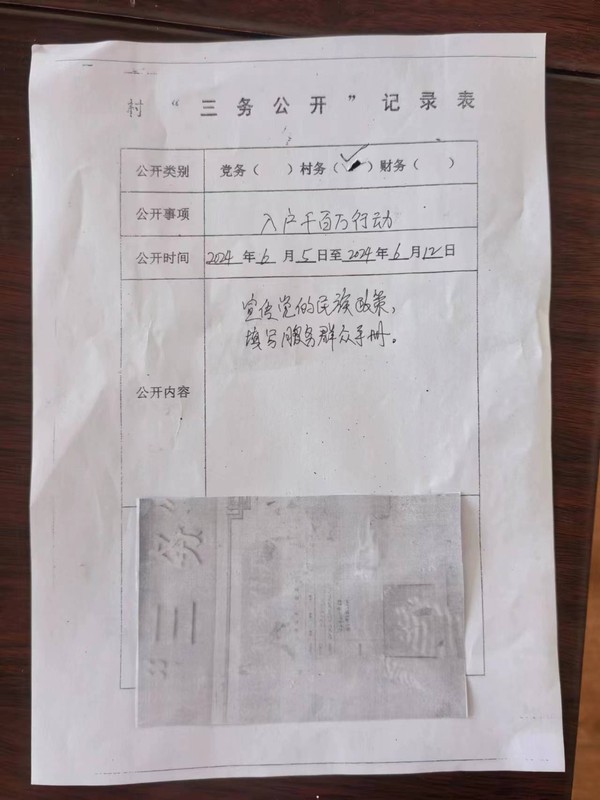 村“三务公开”记录表
公开类别 党务（ ）村务（✓）财务（ ）
公开事项 入户千百万行动
公开时间 2024年6月5日至2024年6月12日
公开内容 宣传党的民族政策，
填写服务群众手册。
“三务